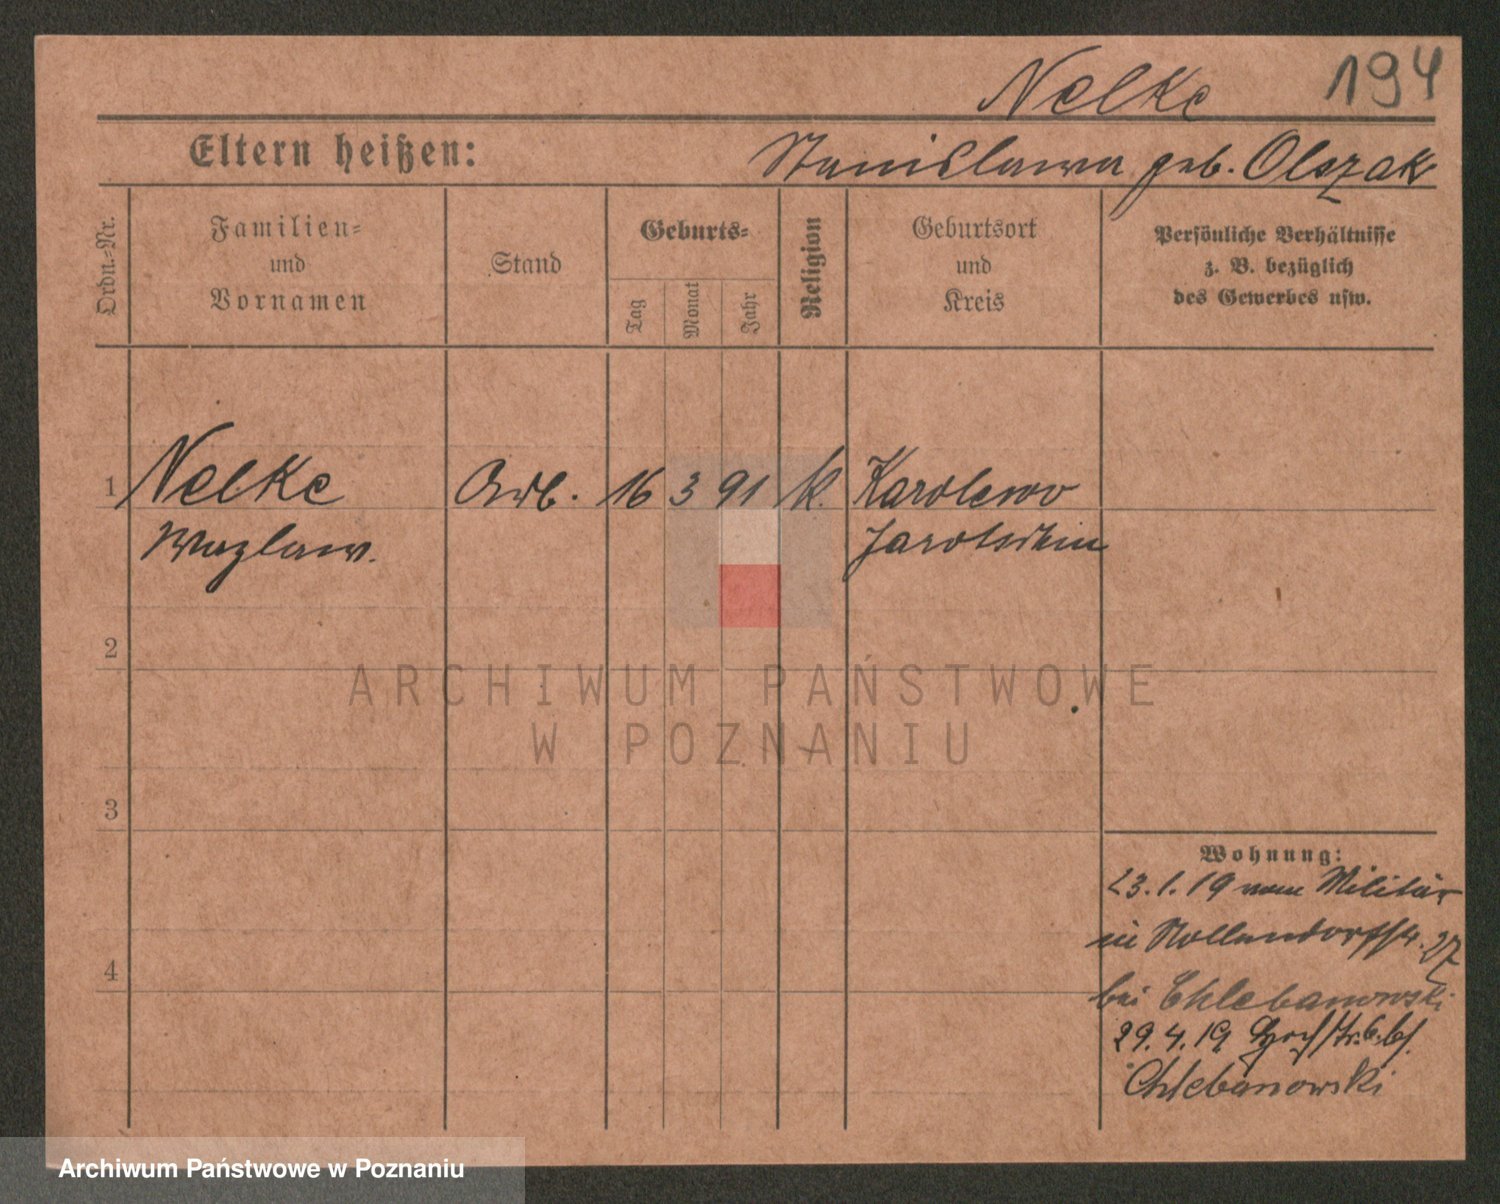 194
Nelke
Eltern heißen:
Stanislawa geb. Olszak
Ordn.-Nr.
Familien-
und
Vornamen
Stand
Geburts-
Tag
Monat
Jahr
Religion
Geburtsort
und
Kreis
Persönliche Verhältnisse
z. B. bezüglich
des Gewerbes usw.
1 Nelke Arb. 16 3 91 k. Karolewo
Wazlaw. Jarotschin
2
3
4
ARCHIWUM PAŃSTWOWE
W POZNANIU
Wohnung:
23.1.19 vom Militär
in Nollendorfstr. 27
bei Chlebanowski
29.4.19 6. b/.
Chlebanowski
Archiwum Państwowe w Poznaniu